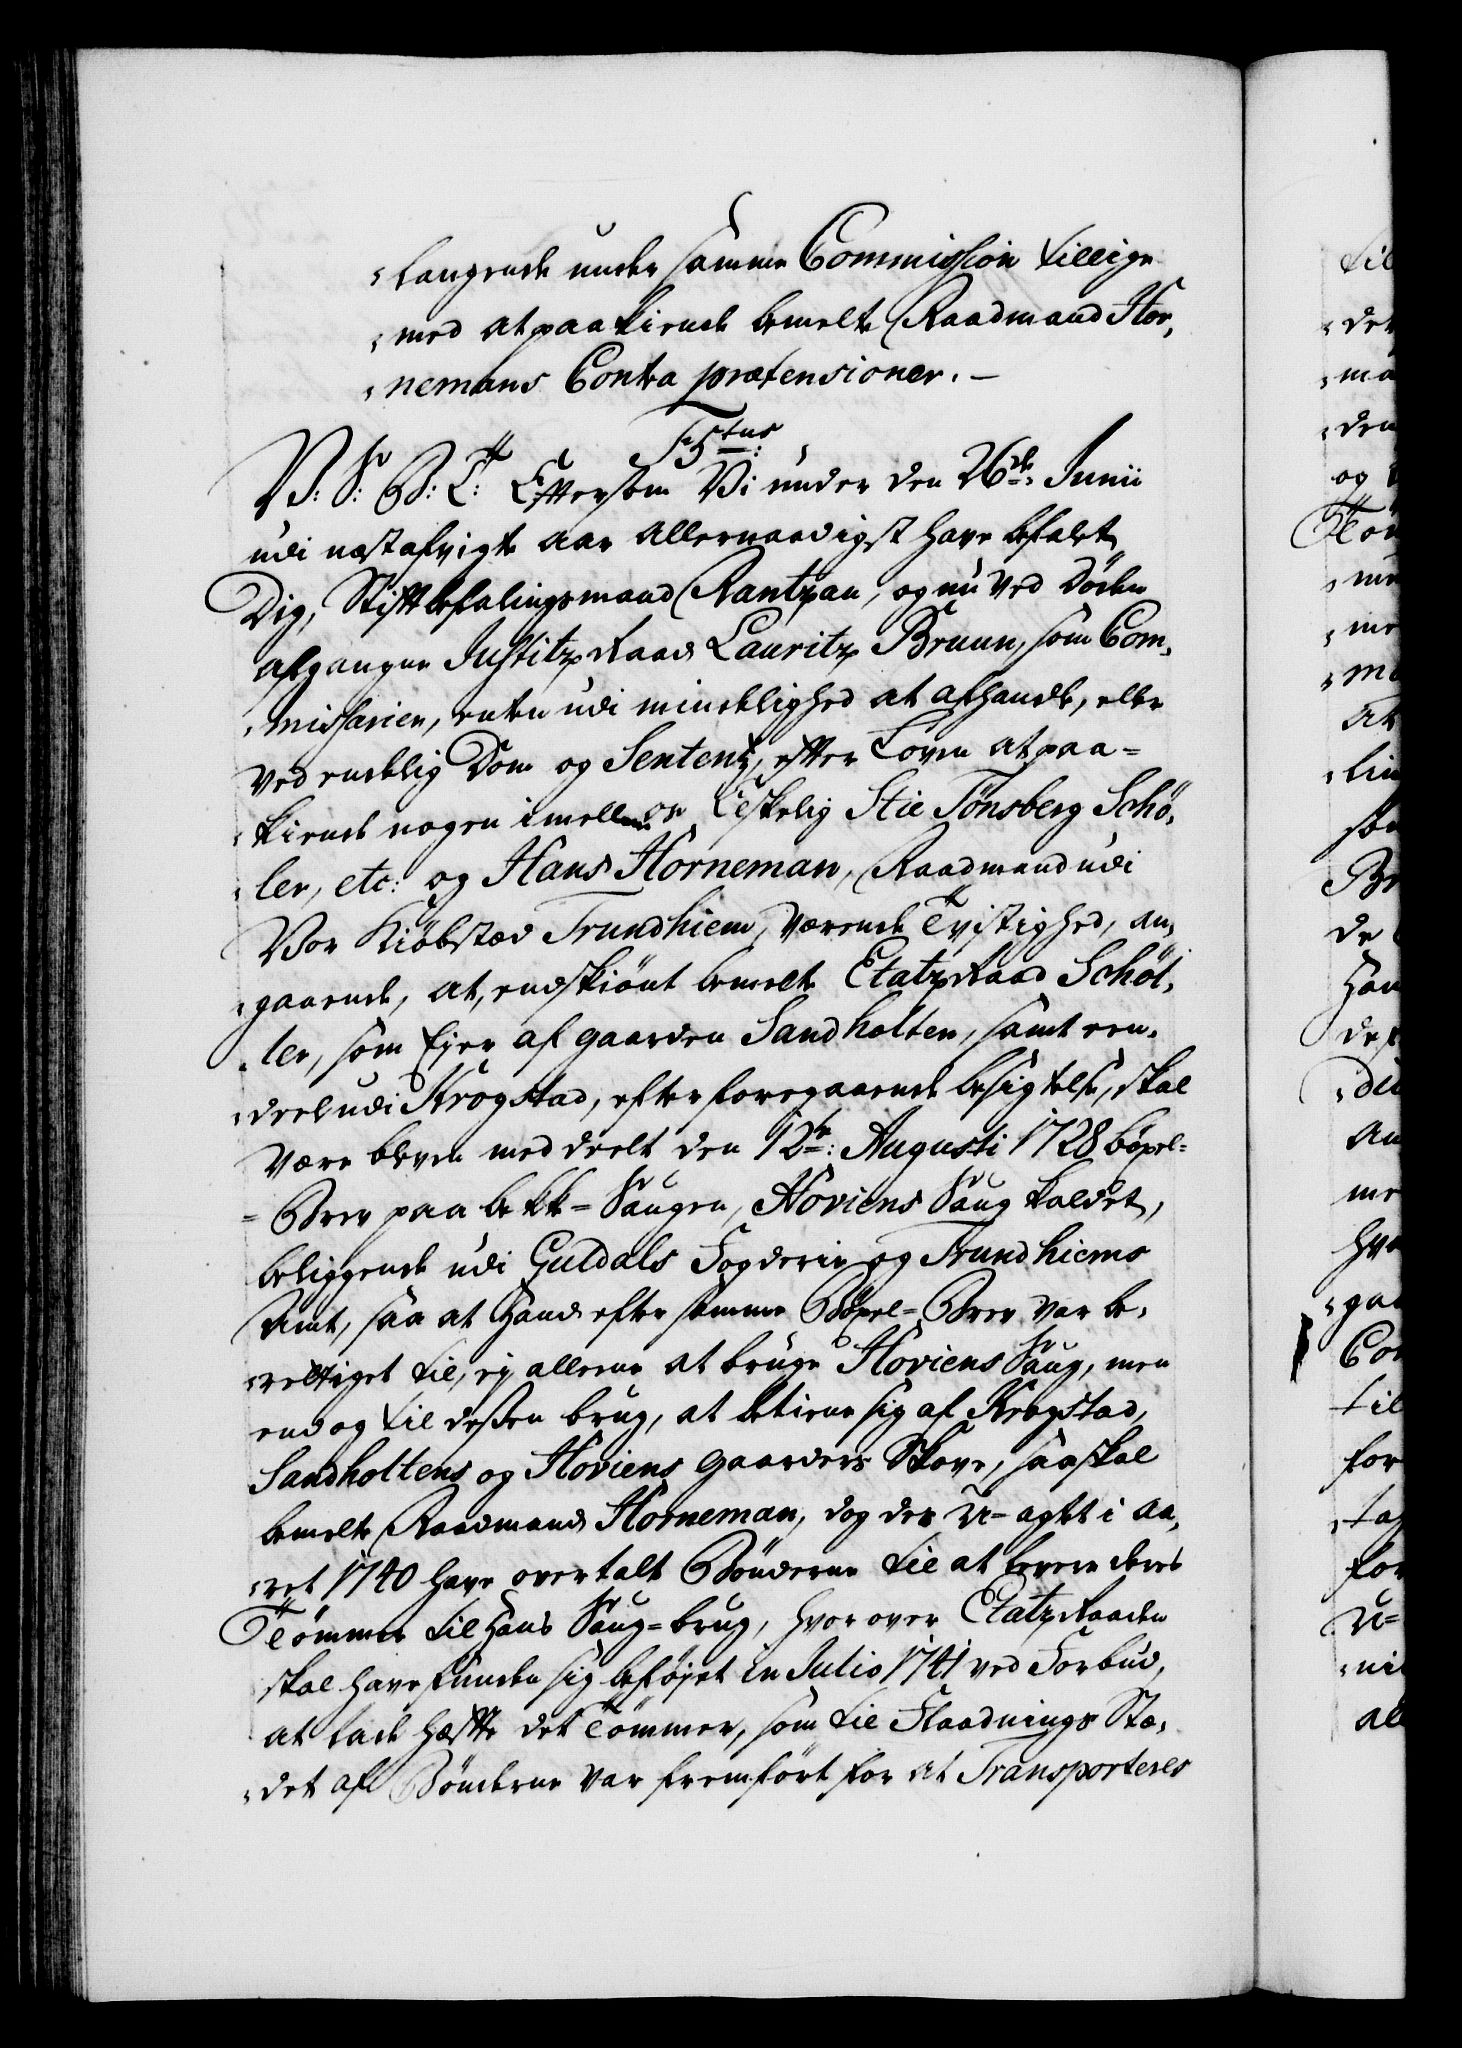 „langende under samme Commission tillige
„med at paakiende bemelte Raadmand Hor„
„nemans Contra prætensioner. —
F5tus:
V: S: B: T: Eftersom Vi under den 26de: Junii
udi næstafvigte aar allernaadigst have befalet
Dig, Stiftbefalingsmand Rantzau, og nu ved Döden
afgangne Justitz Raad Lauritz Bruun, som Com„
„missarier, enten udi mindelighed at afhandle, eller
ved endelig Dom og Sententz, efter Loven at paa=
„kiende nogen imellem os Elskelig Stie Tönsberg Schö„
„ler, etc: og Hans Horneman, Raadmand udi
Vor Kiöbstæd Trundhiem, værende Tvistighed, an„
„gaaende, at, endskiönt bemelte Etatz Raad Schöl„
„ler, som Ejer af gaarden Sandholten, samt een„
„deel udi Krogstad, efter foregaaende besigtelse, skal
være bleven meddeelt den 12te: Augusti 1728 böxel=
=Brev paa bekk=Saugen, Hoviens Saug kaldet,
beliggende udi Guldals Fogderie og Trundhiems
Amt, saa at hand efter samme Böxel=Brev var be„
„rettiget til, ej alleene at bruge Hoviens Saug, men
endog til dessen brug, at betiene sig af Krogstad,
Sandholtens og Hoviens gaarders Skove, saa skal
bemelte Raadmand Horneman, dog der U=agtet i aa„
„ret 1740 have overtalt Bönderne til at levere deres
Tömmer til hans Saug=brug, hvorover Etatz Raaden
skal have funden sig beföjet in Julio 1741 ved Forbud,
at lade hæffte det Tömmer, som til Flaadnings Stæ„
„det af Bönderne var fremfört for at Transporteres